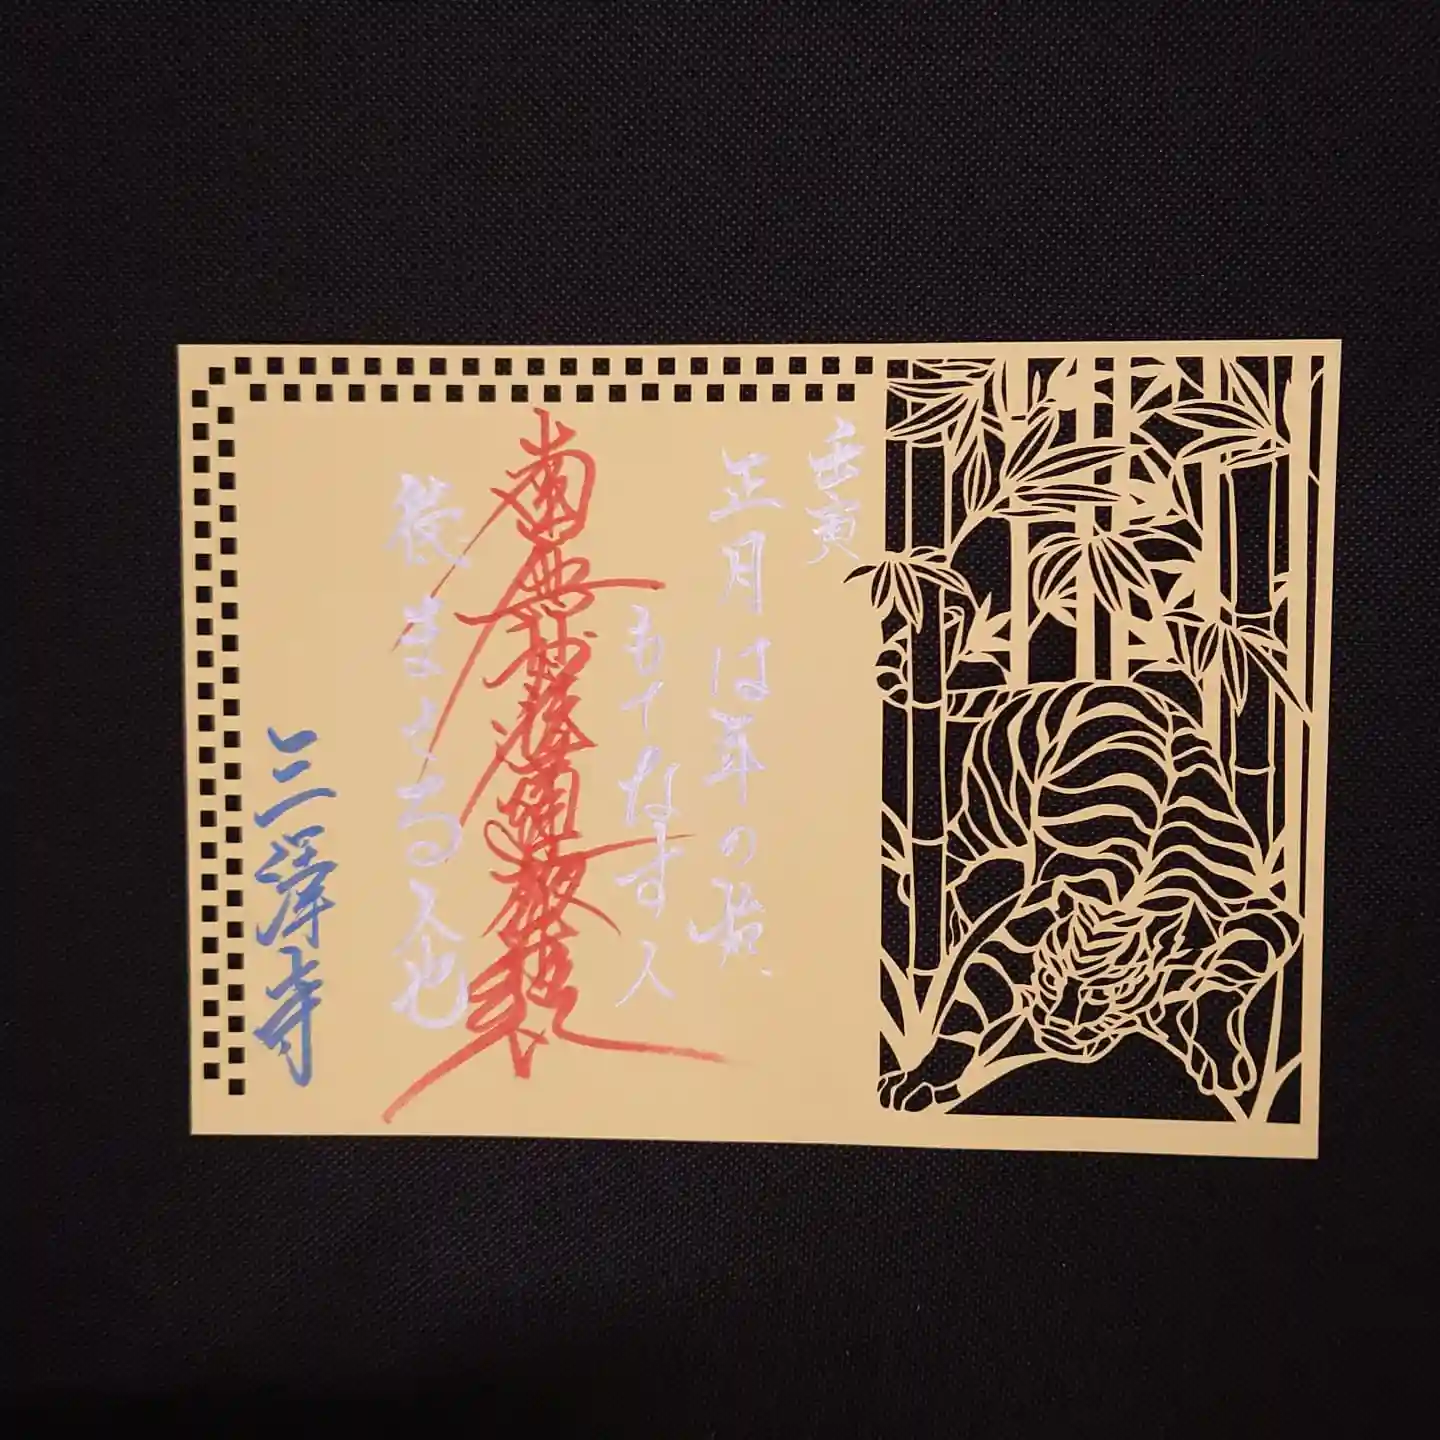 壬寅
正月は年の始
もてなす人
南無妙法蓮華経
徳まさる人也
三澤寺